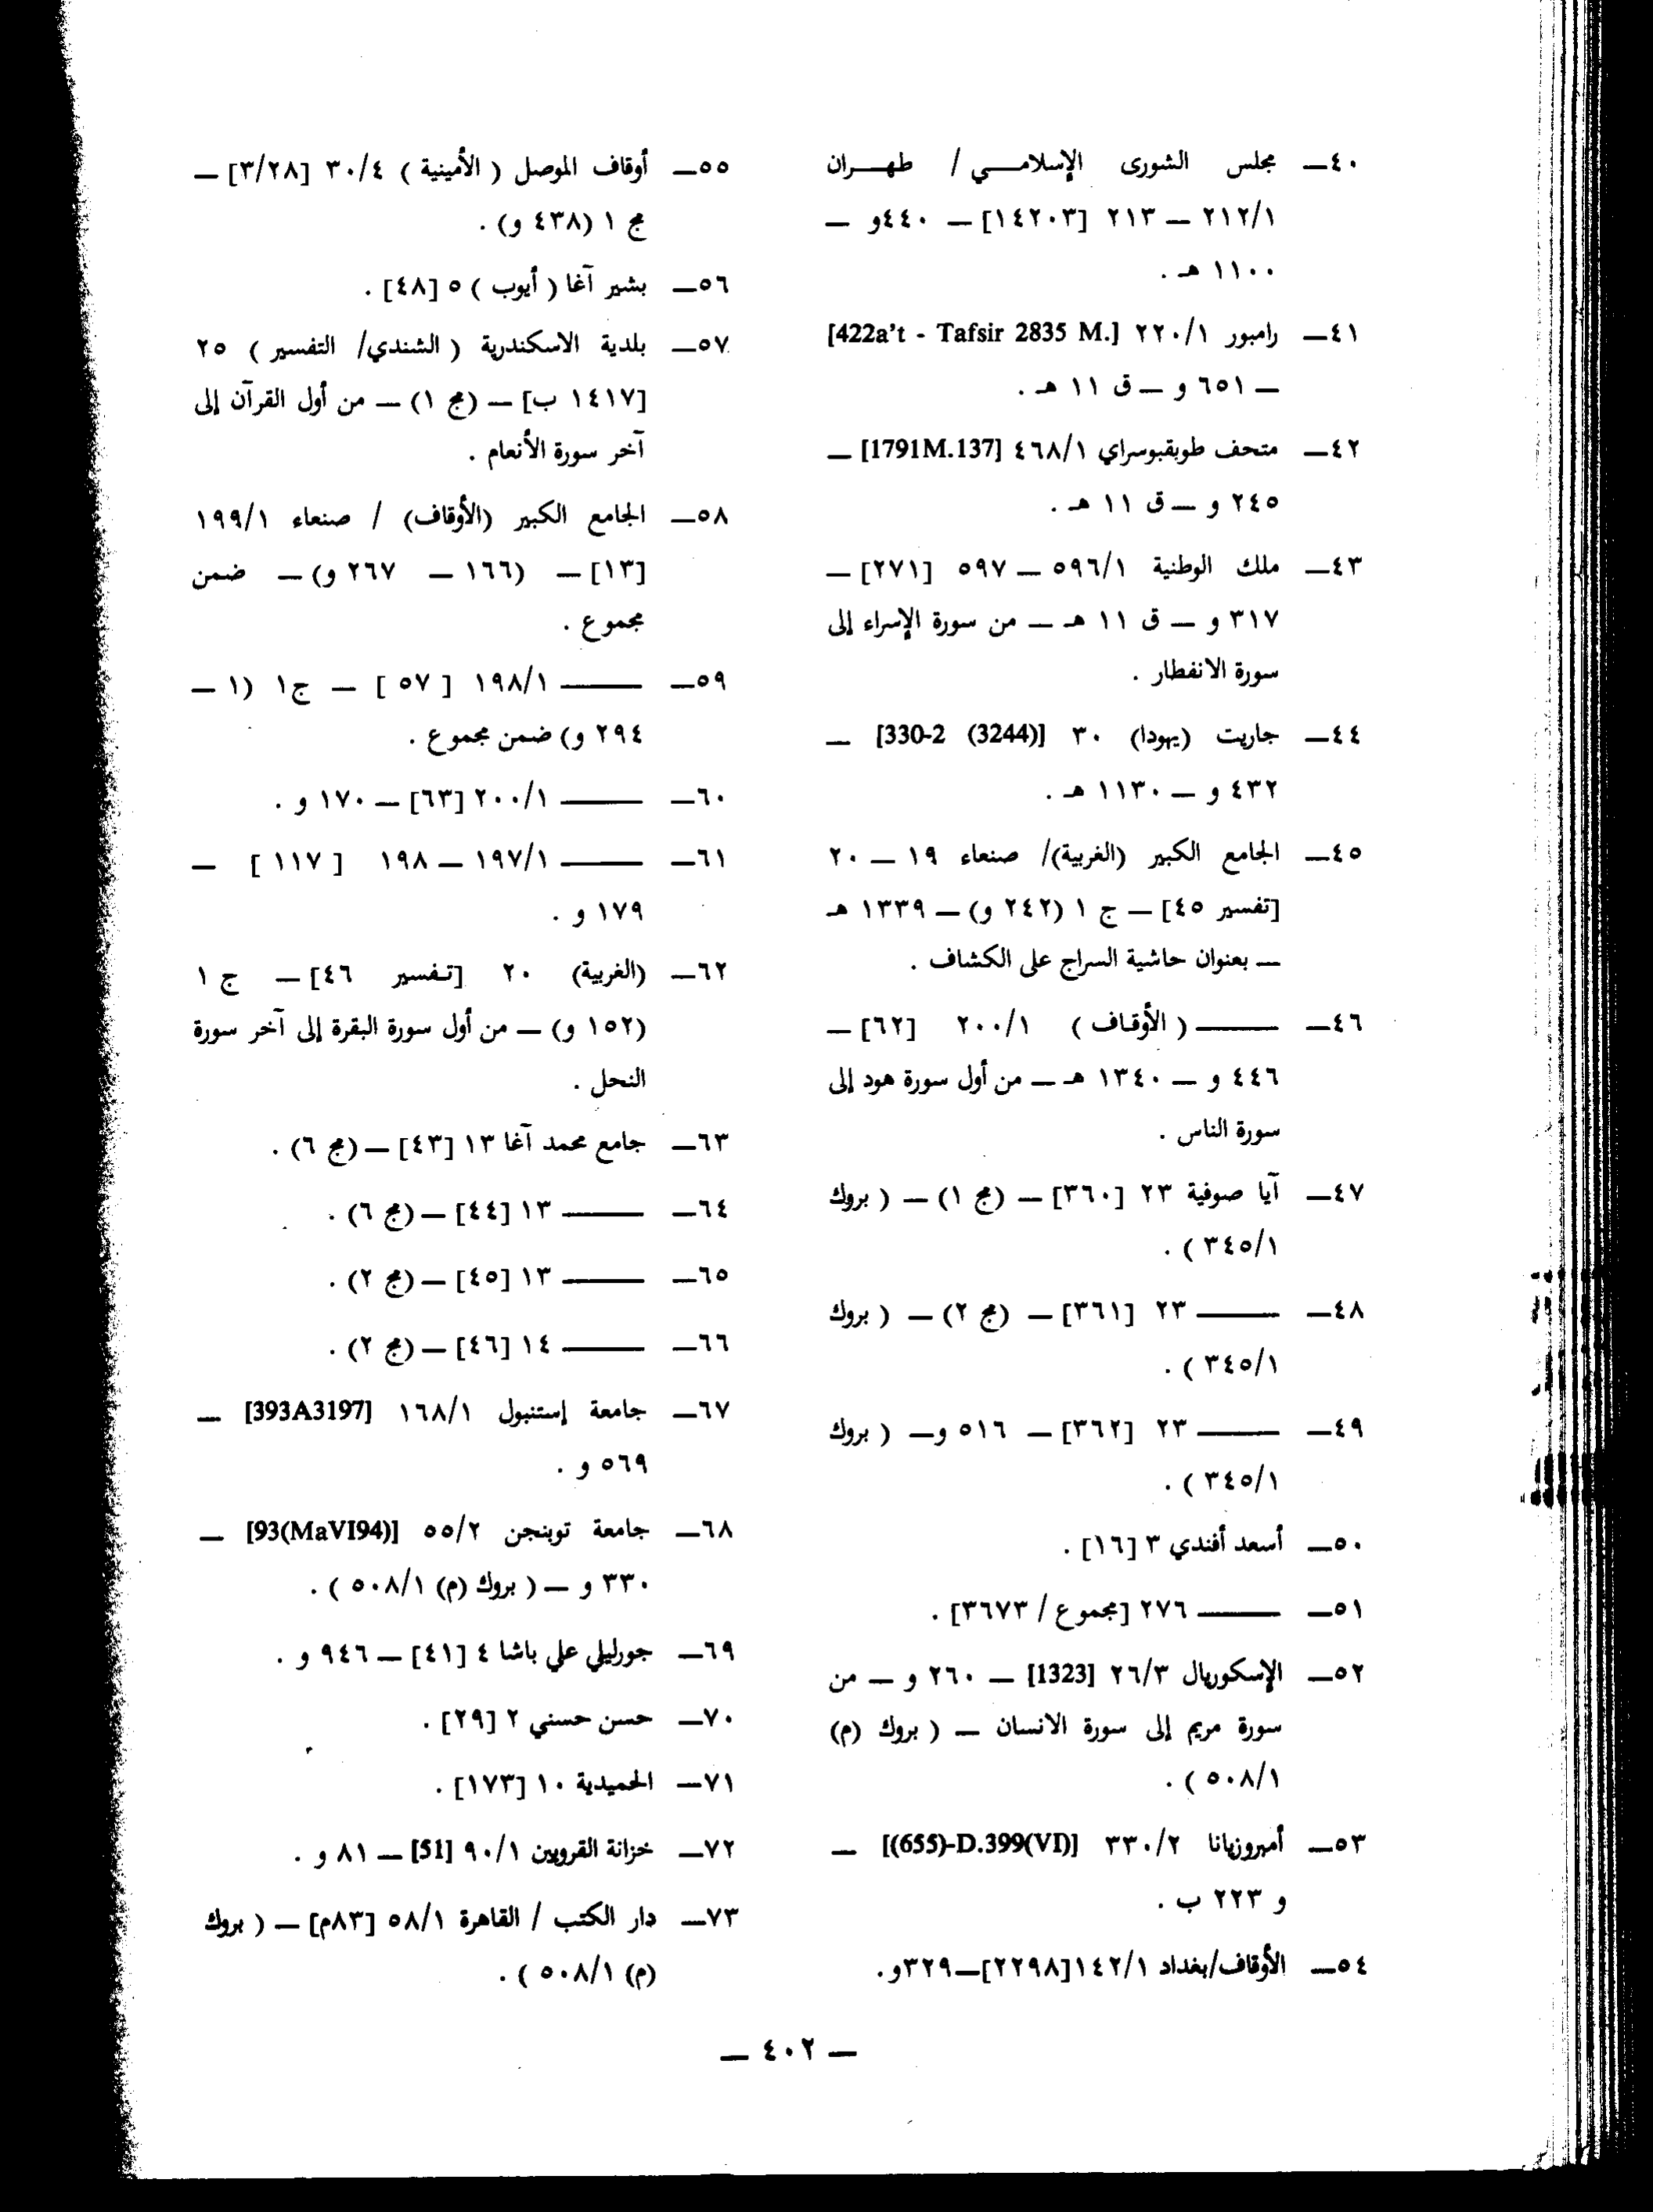 ٤٠— مجلس الشورى الإسلامـــي / طهـــران
٢١٢/١ — ٢١٣ [١٤٢٠٣] — ٤٤٠و —
١١٠٠ هـ .
٤١— رامبور ٢٢٠/١ [422a't - Tafsir 2835 M.]
— ٦٥١ و — ق ١١ هـ .
٤٢— متحف طوبقبوسراي ٤٦٨/١ [1791M.137] —
٢٤٥ و — ق ١١ هـ .
٤٣— ملك الوطنية ٥٩٦/١ — ٥٩٧ [٢٧١] —
٣١٧ و — ق ١١ هـ — من سورة الإسراء إلى
سورة الانفطار .
٤٤— جاريت (يهودا) ٣٠ [330-2 (3244)] —
٤٣٢ و — ١١٣٠ هـ .
٤٥— الجامع الكبير (الغربية)/ صنعاء ١٩ — ٢٠
[تفسير ٤٥] — ج ١ (٢٤٢ و) — ١٣٣٩ هـ
— بعنوان حاشية السراج على الكشاف .
٤٦— ——— ( الأوقاف ) ٢٠٠/١ [٦٢] —
٤٤٦ و — ١٣٤٠ هـ — من أول سورة هود إلى
سورة الناس .
٤٧— آيا صوفية ٢٣ [٣٦٠] — (مج ١) — ( بروك
٣٤٥/١ ) .
٤٨— ——— ٢٣ [٣٦١] — (مج ٢) — ( بروك
٣٤٥/١ ) .
٤٩— ——— ٢٣ [٣٦٢] — ٥١٦ و— ( بروك
٣٤٥/١ ) .
٥٠— أسعد أفندي ٣ [١٦] .
٥١— ——— ٢٧٦ [مجموع / ٣٦٧٣] .
٥٢— الإسكوريال ٢٦/٣ [1323] — ٢٦٠ و — من
سورة مريم إلى سورة الانسان — ( بروك (م)
٥٠٨/١ ) .
٥٣— أمبروزيانا ٣٣٠/٢ [(655)-D.399(VI)] —
و ٢٢٣ ب .
٥٤— الأوقاف/بغداد ١٤٢/١[٢٢٩٨]—٣٢٩و.
٥٥— أوقاف الموصل ( الأمينية ) ٣٠/٤ [٣/٢٨] —
مج ١ (٤٣٨ و) .
٥٦— بشير آغا ( أيوب ) ٥ [٤٨] .
٥٧— بلدية الاسكندرية ( الشندي/ التفسير ) ٢٥
[١٤١٧ ب] — (مج ١) — من أول القرآن إلى
آخر سورة الأنعام .
٥٨— الجامع الكبير (الأوقاف) / صنعاء ١٩٩/١
[١٣] — (١٦٦ — ٢٦٧ و) — ضمن
مجموع .
٥٩— ——— ١٩٨/١ [ ٥٧ ] — ج١ (١ —
٢٩٤ و) ضمن مجموع .
٦٠— ——— ٢٠٠/١ [٦٣] — ١٧٠ و .
٦١— ——— ١٩٧/١ — ١٩٨ [ ١١٧ ] —
١٧٩ و .
٦٢— (الغربية) ٢٠ [تفسير ٤٦] — ج ١
(١٥٢ و) — من أول سورة البقرة إلى آخر سورة
النحل .
٦٣— جامع محمد آغا ١٣ [٤٣] — (مج ٦) .
٦٤— ——— ١٣ [٤٤] — (مج ٦) .
٦٥— ——— ١٣ [٤٥] — (مج ٢) .
٦٦— ——— ١٤ [٤٦] — (مج ٢) .
٦٧— جامعة إستنبول ١٦٨/١ [393A3197] —
٥٦٩ و .
٦٨— جامعة توبنجن ٥٥/٢ [93(MaVI94)] —
٣٣٠ و — ( بروك (م) ٥٠٨/١ ) .
٦٩— جورليلي علي باشا ٤ [٤١] — ٩٤٦ و .
٧٠— حسن حسني ٢ [٢٩] .
٧١— الحميدية ١٠ [١٧٣] .
٧٢— خزانة القرويين ٩٠/١ [51] — ٨١ و .
٧٣— دار الكتب / القاهرة ٥٨/١ [٨٣م] — ( بروك
(م) ٥٠٨/١ ) .
— ٤٠٢ —